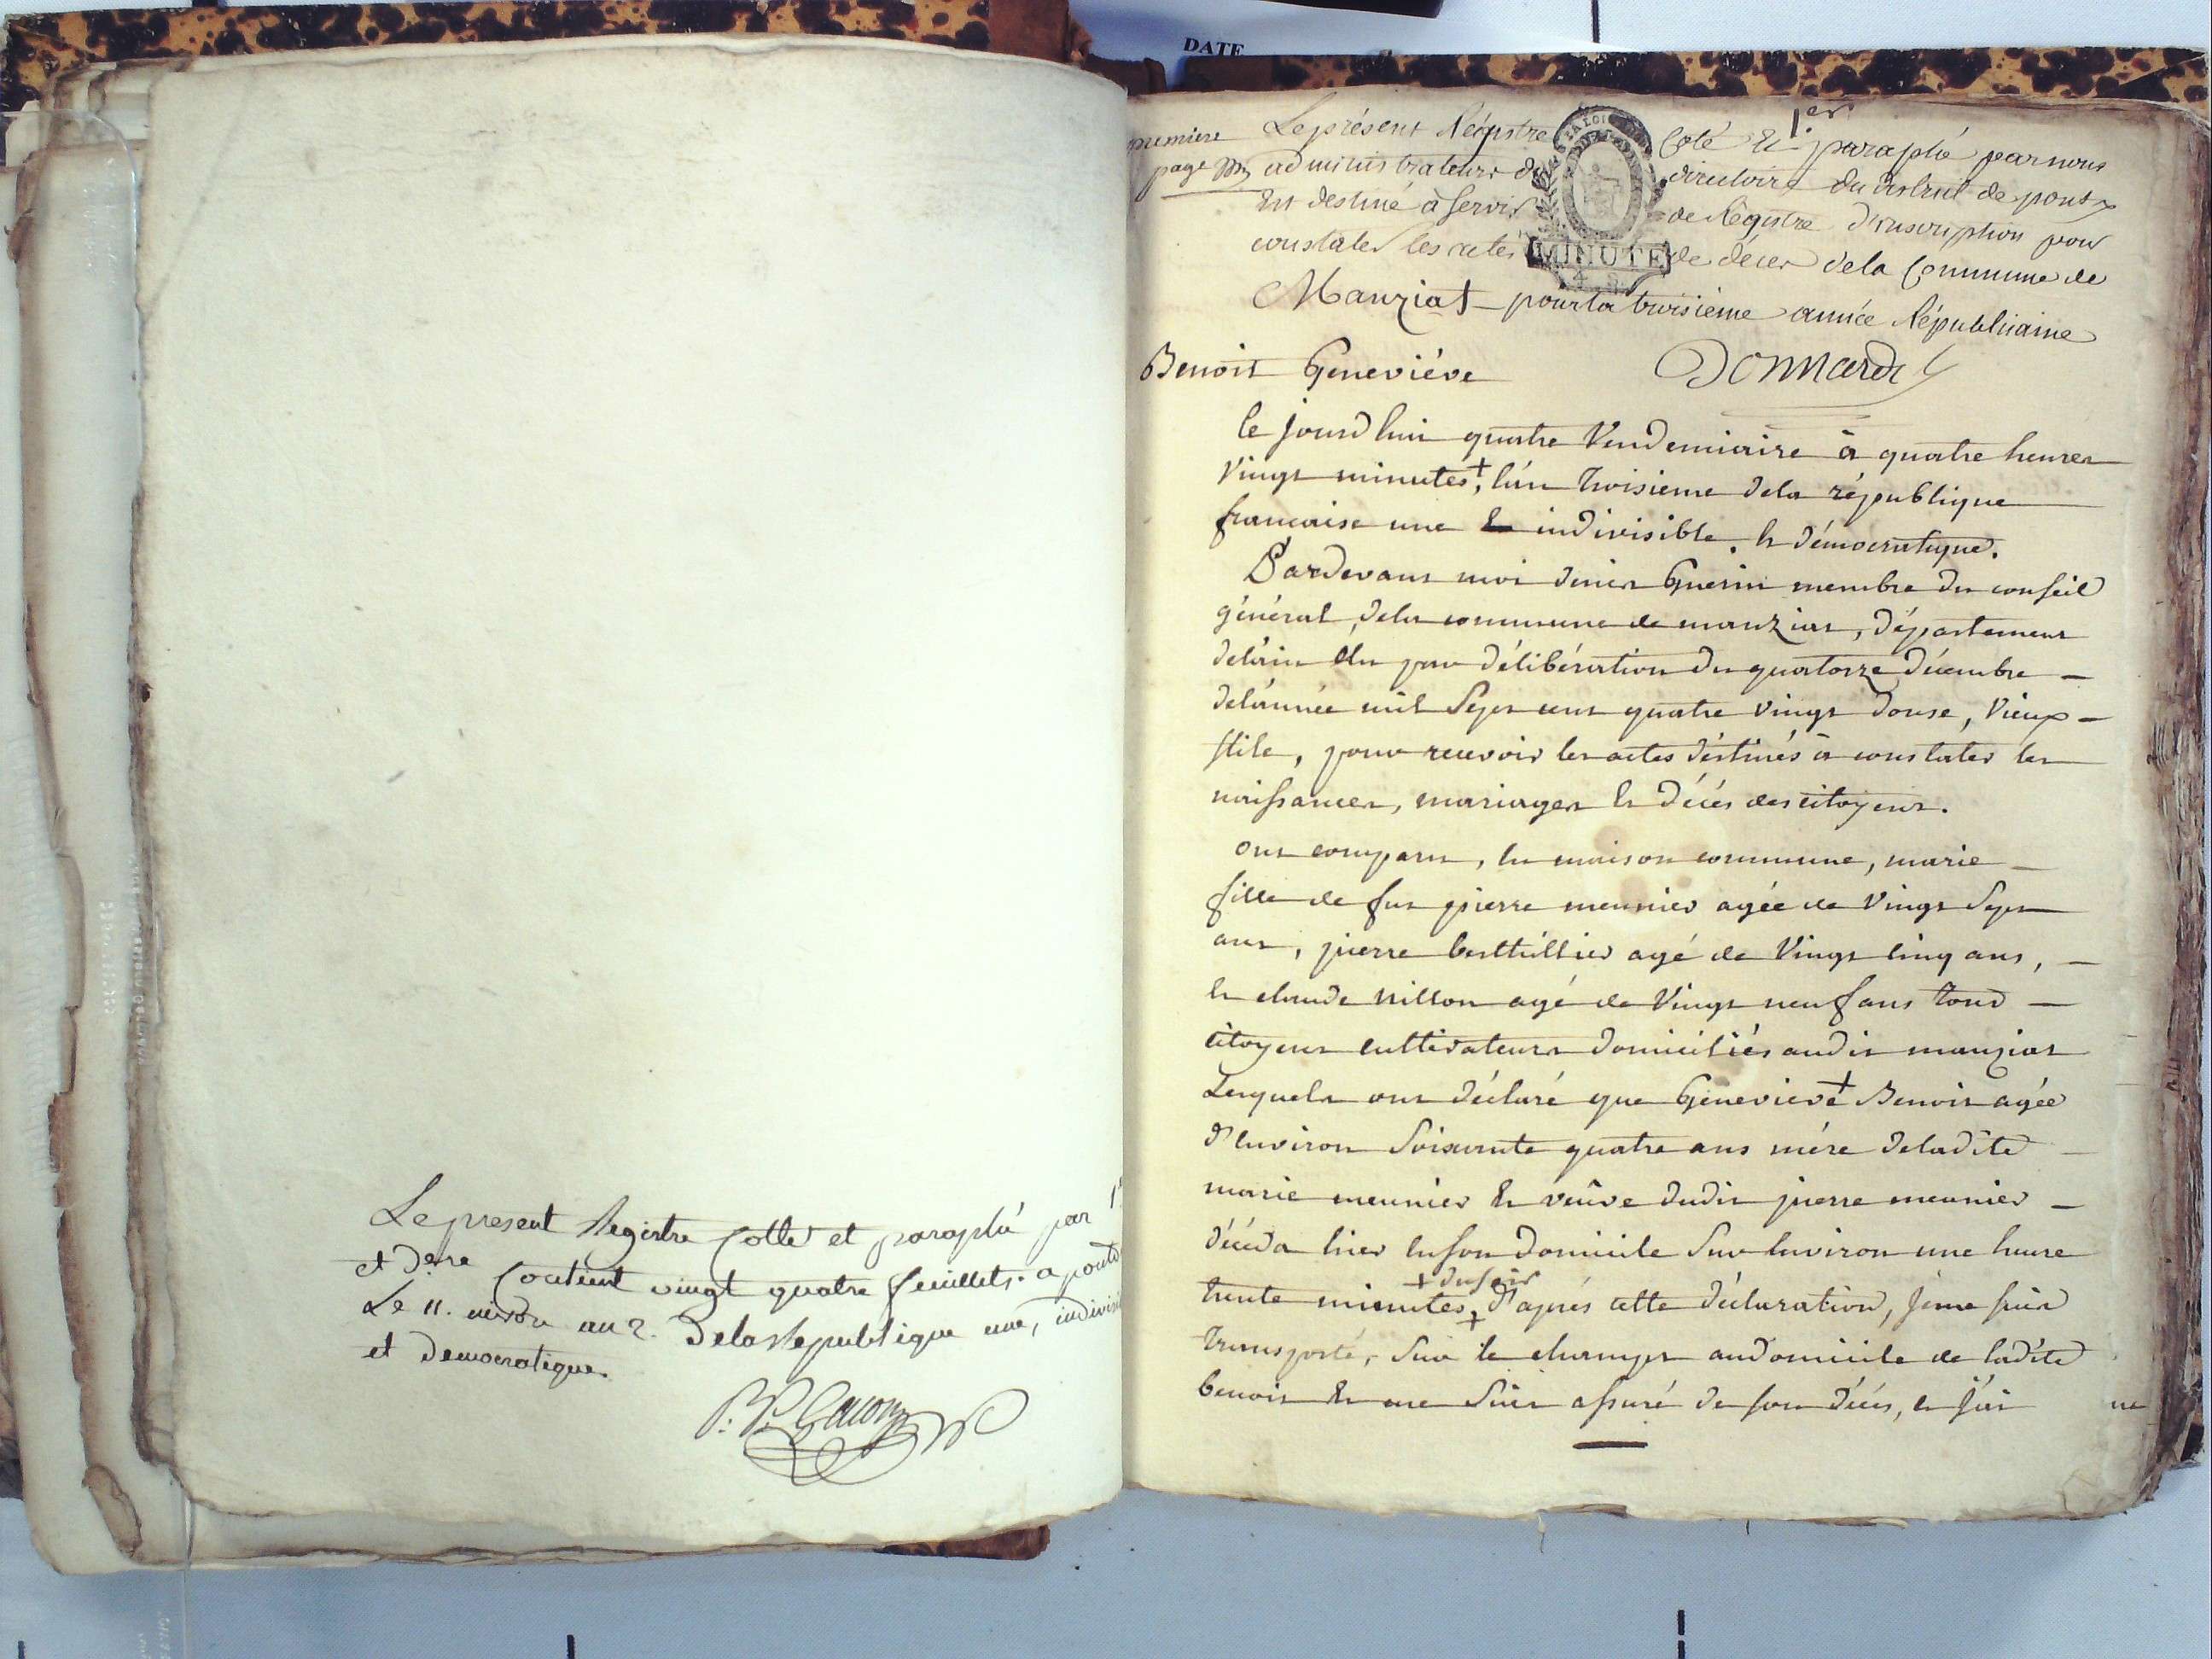 Le present Registre Cotté et paraphé par 1er
et dere Contient vingt quatre feuillets. a pont
Le 11. nivose an 2. De la Republique une, indivisi
et democratique.
DATE
1er
premiere
page
Le présent Régistre Coté Et paraphé par nous
administrateurs du directoire du district de pont
Est destiné à servir de Régistre d'inscription pour
constater les actes de décès de la Commune de
Manziat pour la troisième année Républicaine
LA LOI
MINUTE
Benoit Geneviéve
Ce jourd'hui quatre Vendemiaire à quatre heures
Vingt minutes+, l'an Troisieme de la république
francaise une Et indivisible. Et démocratique.
Pardevant moi denis Guerin membre du conseil
général, de la commune de manziat, département
de l'ain élu par délibération du quatorze décembre —
de l'année mil Sept cent quatre vingt douse, Vieux —
stile, pour recevoir les actes déstinés à constater les
naissances, mariages Et décés des citoyens.
ont comparu, En maison commune, marie —
fille de fut pierre meunier agée de Vingt Sept
ans, pierre berthillier agé de Vingt Cinq ans, —
Et claude nillon agé de Vingt neuf ans tous —
Citoyens cultivateurs domiciliés audit manziat
Lesquels ont déclaré que Genevieve+ Benoit agée
d'Environ Soixante quatre ans mére de ladite —
marie meunier Et veûve dudit pierre meunier —
décéda hier En son domicile Sur Environ une heure
+ du soir
trente minutes+, d'aprés cette déclaration, je me suis
Transporté, Sur le champs au domicile de ladite
benoit Et me Suis assuré de son décés, Et j'ai